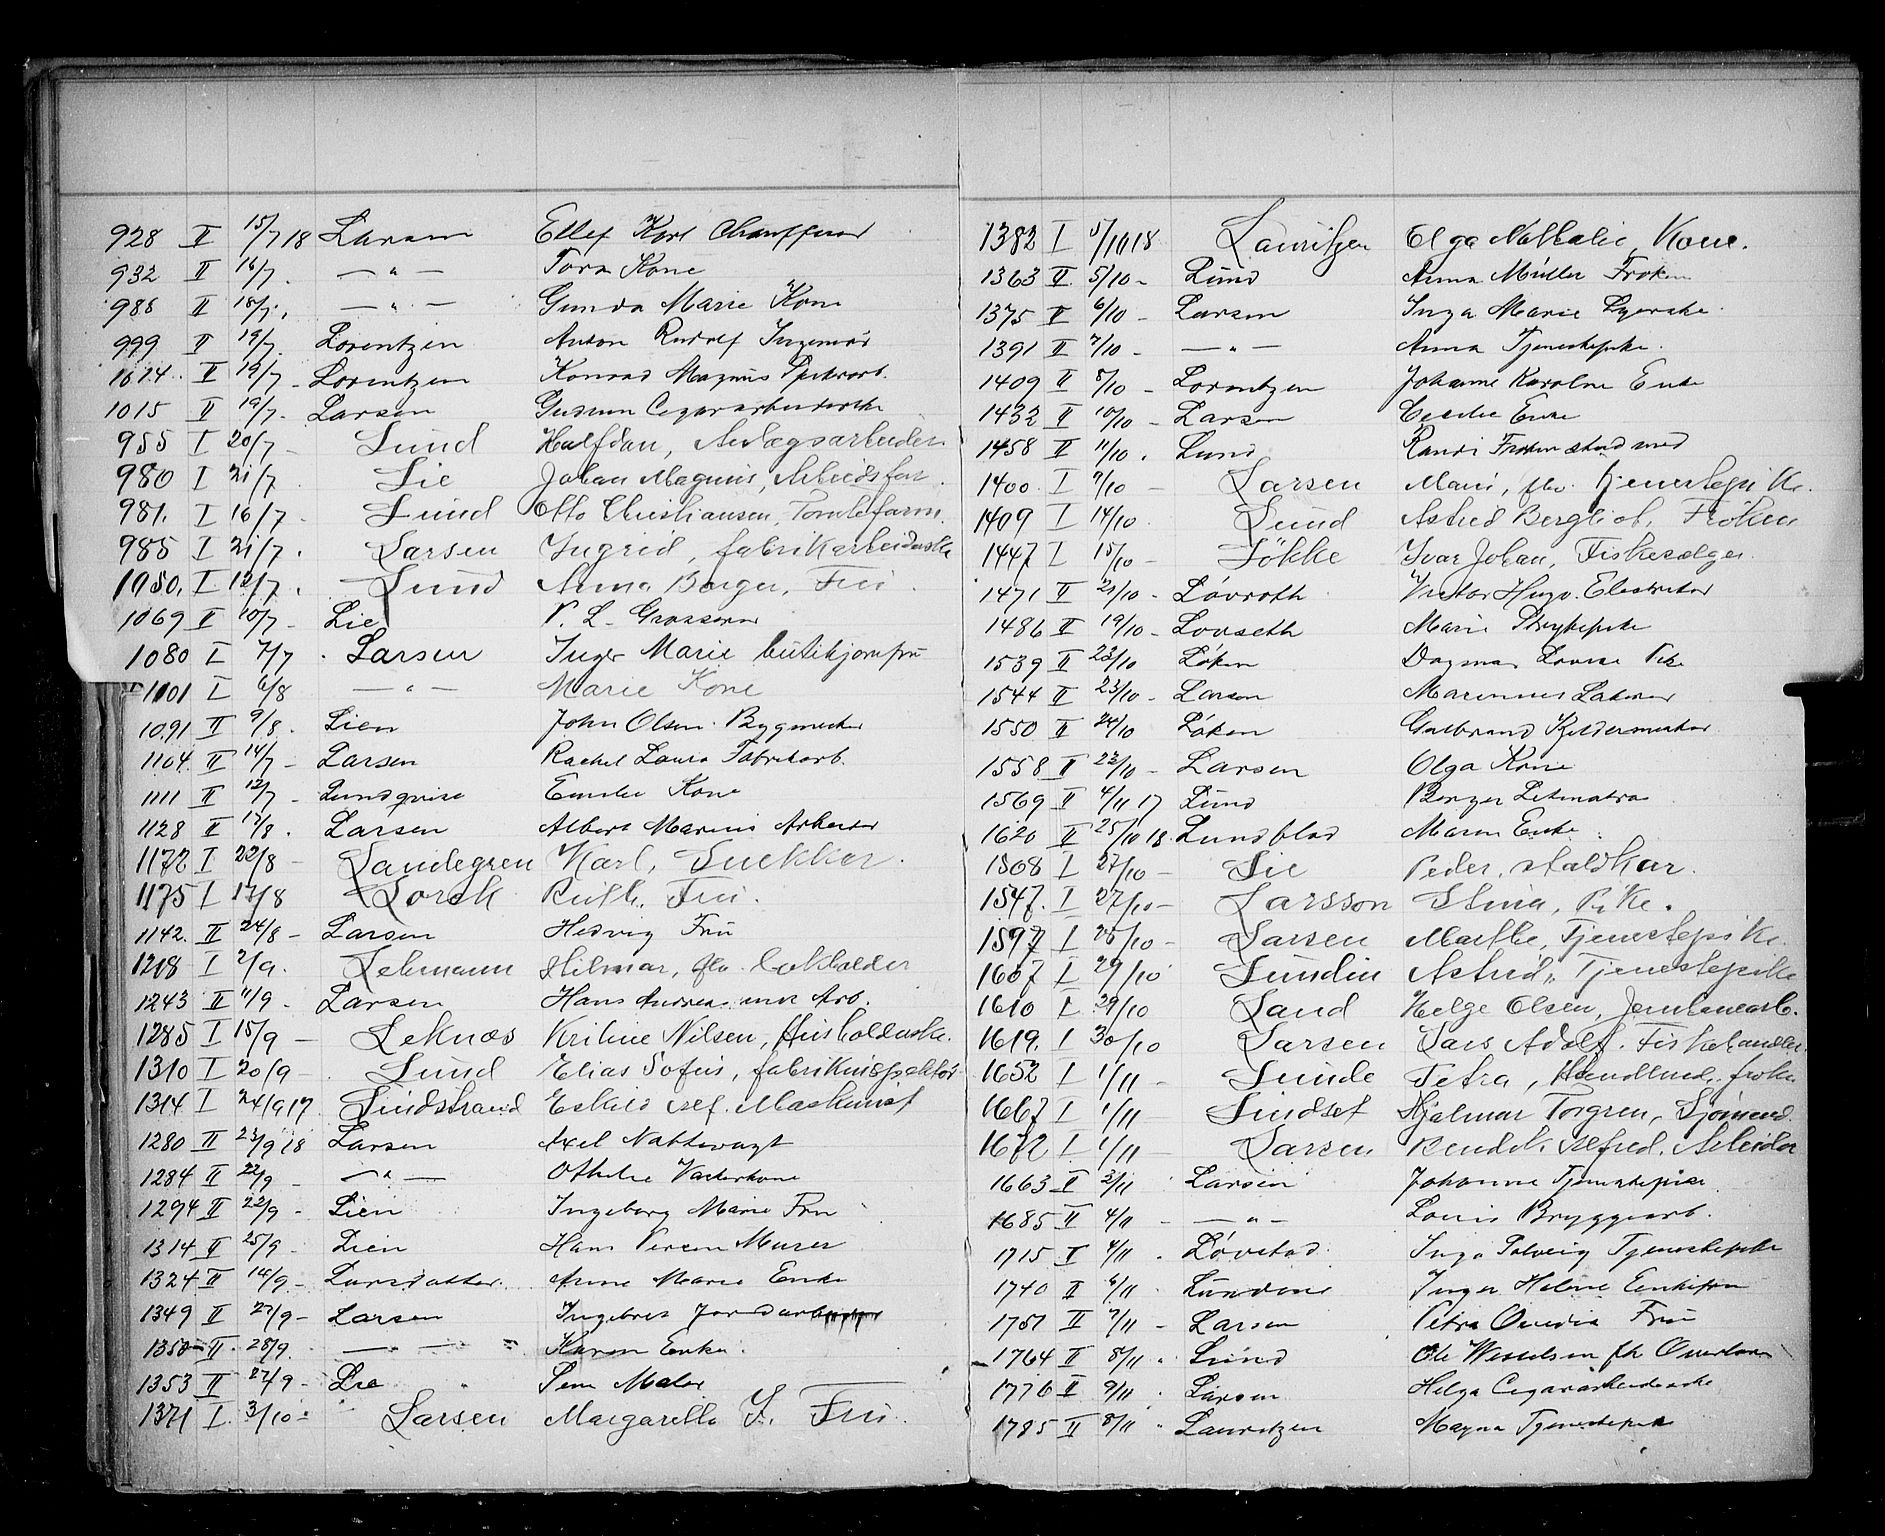 928 II 15/7 18 Larsen Ellef Karl Chauffeur
932 II 16/7 — " — Tora Kone
988 II 18/7 — " — Gunda Marie Kone
999 II 19/7 Lorentzen Anton Rudolf Ingeniør
1014 II 19/7 - Lorentzen Konrad Magnus
1015 II 19/7 - Larsen Gudrun Cigararbeiderske
955 I 20/7 - Lund Halfdan, Anlægsarbeider
980 I 21/7 Lie Johan Magnus, Arbeidsfor
981. I 16/7 - Lund Otto Christiansen, Tomteform.
985 I 21/7. Larsen Ingrid, fabrikarbeiderske
1050. I 12/7. Lund Anna Borger, Fru
1069 II 10/7 - Lie P. L. Grosserer
1080 I 7/7 . Larsen Inger Marie
1101 I 6/8 — " — Marie Kone
1091 II 9/8. Lien John Olsen Bygmester
1104. II 14/7 - Larsen Rachel Laura Fabrikarb.
1111 II 12/7 - Lundqvist Emilie Kone
1128 II 17/8. Larsen Albert Marius Arbeider
1172 I 22/8 - Landegren Karl, Snekker.
1175 I 17/8 Lorck Ruth, Fru.
1142. II 24/8 - Larsen Hedvig Fru
1218 I 2/9. Lehmann Hilmar, fhv.
1243 II 11/9 - Larsen Hans Andreas Arb.
1285 I 15/9 - Leknæs Kristine Nilsen, Husholderske.
1310 I 20/9 - Lund Elias Sofus, fabrikinspektør
1314 I 24/9 17 Lindstrand Eskild Alf. Maskinist
1280 II 23/9 18 Larsen Axel Nattevagt
1284 II 22/9 - — " — Othelie Vaskerkone
1294 II 22/9 - Lien Ingeborg Marie Fru
1314 II 25/9 - Lien Hans Murer
1324 II 14/9 - Larsdatter Anne Marie Enke
1349 II 27/9 - Larsen Ingebret
1350 - II - 28/9. — " — Karen Enke.
1353 II 27/9 - Lie Maler
1371 I 3/10 - Larsen Margarethe S. Fru.
1382 I 5/10 18 Lauritzen Olga Nathalie, Kone.
1363 II 5/10 - Lund Anna Müller Frøken
1375 II 6/10 - Larsen Inga Marie
1391 II 7/10 - — " — Anna Tjenestepike.
1409 II 8/10 - Lorentzen Johanne Karoline Enke
1432 II 10/10 - Larsen Cecilie Enke
1458 II 11/10. Lund Randi Frøken stud med
1400 I 7/10 - Larsen Marie, fhv. tjenestepike.
1409 I 14/10 Lund Astrid Bergliot, Frøken
1447 I 15/10 - Løkke Ivar Johan, Fiskesælger
1471 II 21/10 - Løvroth Victor Hugo. Elektriker
1486 II 19/10 - Lovseth Marie Strykepike
1539 II 23/10 Løken Dagmar Lovise Pike
1544 II 23/10 - Larsen Marinius
1550 II 24/10 Løken Gulbrand Kjeldermester
1558 II 23/10 - Larsen Olga Kone
1569 II 4/11 17 Lund Borger Letmatros
1620 II 25/10 18. Lundblad Maren Enke.
1508 I 27/10 - Lie Peder, staldkar.
1547. I 27/10 - Larsson Stina, Pike.
1597 I 25/10 - Larsen Marthe, Tjenestepike.
1607 I 29/10 Lundin Astrid, Tjenestepike
1610 I 29/10 Land Helge Olsen, Jernbanearb.
1619. I 30/10 Larsen Lars Adolf. Fiskehandler.
1652 I 1/11 - Lunde Petra, Handlend. frøken
1667 I 1/11 Lindset Hjalmar Torgren, Sjømand.
1672 I 1/11 - Larsen Bendik Alfred. Arbeider
1663 II 2/11 Larsen Johanne Tjenestepike
1685 II 4/11 - — " — Louis Bryggearb.
1715 II 4/11 . Løvstad Inga Solveig Tjenestepike
1740 II 6/11 . Lundene Inger Helene Enkefru
1751 II 7/11 - Larsen Petra Ovedia Fru
1764 II 8/11 . Lund Ole Wesselsen fh
1776 II 9/11 . Larsen Helga Cigararbeiderske
1785 II 8/11 . Lauritzen Magna Tjenestepike